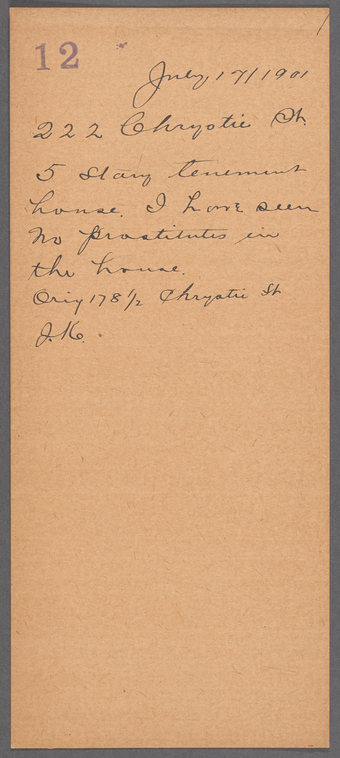 12
July 17/1901
222 Chrystie St.
5 story tenement
house. I have seen
no prostitutes in
the house.
Orig 178 1/2 Chrystie St
J.K.